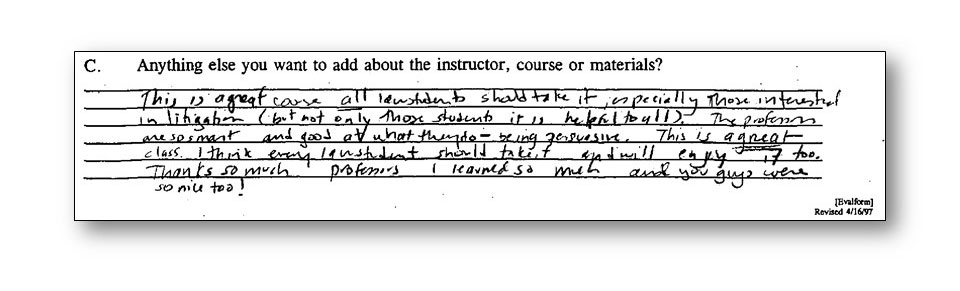 C. Anything else you want to add about the instructor, course or materials?
This is a great course all lawstudents should take it, especially those interested
in litigation (but not only those students it is helpful to all). The professors
are so smart and good at what they do - being persuasive. This is a great
class. I think every lawstudent should take it and will enjoy it too.
Thanks so much professors I learned so much and you guys were
so nice too!
[Evalform]
Revised 4/16/97